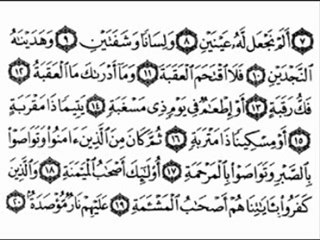 ٧ أَلَمْ نَجْعَل لَّهُۥ عَيْنَيْنِ ٨ وَلِسَانًا وَشَفَتَيْنِ ٩ وَهَدَيْنَٰهُ
ٱلنَّجْدَيْنِ ١٠ فَلَا ٱقْتَحَمَ ٱلْعَقَبَةَ ١١ وَمَآ أَدْرَىٰكَ مَا ٱلْعَقَبَةُ ١٢
فَكُّ رَقَبَةٍ ١٣ أَوْ إِطْعَٰمٌ فِى يَوْمٍ ذِى مَسْغَبَةٍ ١٤ يَتِيمًا ذَا مَقْرَبَةٍ
١٥ أَوْ مِسْكِينًا ذَا مَتْرَبَةٍ ١٦ ثُمَّ كَانَ مِنَ ٱلَّذِينَ ءَامَنُوا۟ وَتَوَاصَوْا۟
بِٱلصَّبْرِ وَتَوَاصَوْا۟ بِٱلْمَرْحَمَةِ ١٧ أُو۟لَٰٓئِكَ أَصْحَٰبُ ٱلْمَيْمَنَةِ ١٨ وَٱلَّذِينَ
كَفَرُوا۟ بِـَٔايَٰتِنَا هُمْ أَصْحَٰبُ ٱلْمَشْـَٔمَةِ ١٩ عَلَيْهِمْ نَارٌ مُّؤْصَدَةٌۢ ٢٠